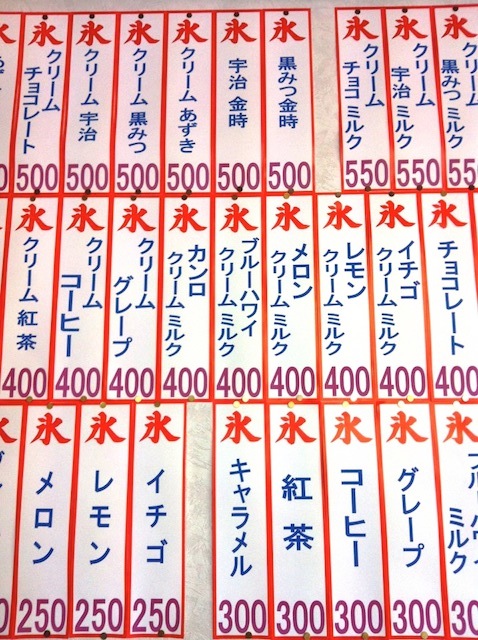 氷
クリーム
黒みつ ミルク
氷
クリーム
宇治 ミルク
550
氷
クリーム
チョコ ミルク
550
氷
黒みつ金時
500
氷
宇治 金時
500
氷
クリーム あずき
500
氷
クリーム 黒みつ
500
氷
クリーム 宇治
500
氷
クリーム
チョコレート
500
氷
チョコレート
400
氷
イチゴ
クリーム ミルク
400
氷
レモン
クリーム ミルク
400
氷
メロン
クリーム ミルク
400
氷
ブルーハワイ
クリーム ミルク
400
氷
カンロ
クリーム ミルク
400
氷
クリーム
グレープ
400
氷
クリーム
コーヒー
400
氷
クリーム 紅茶
400
氷
ブルーハワイ
ミルク
氷
グレープ
300
氷
コーヒー
300
氷
紅茶
300
氷
キャラメル
300
氷
イチゴ
250
氷
レモン
250
氷
メロン
250